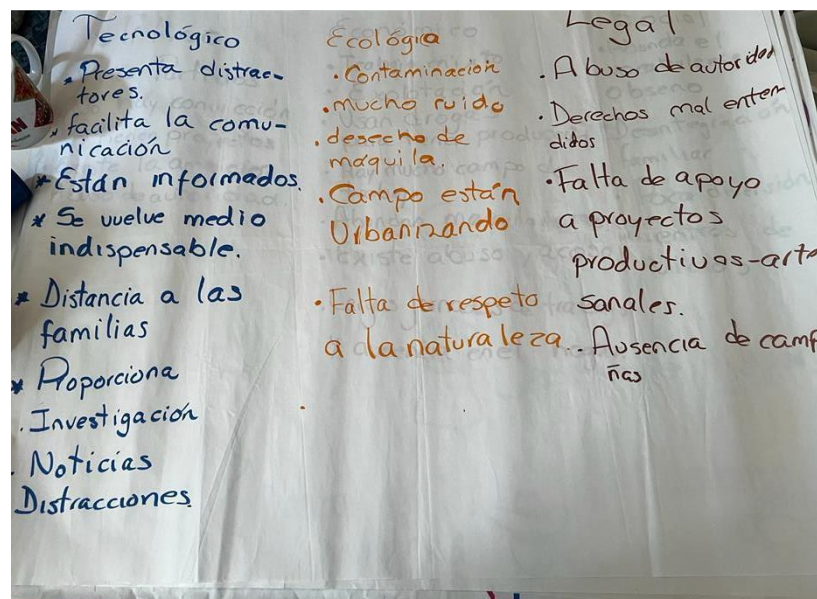 Tecnológico
• Presenta distrac-
tores.
• facilita la comu-
nicación
* Están informados.
* Se vuelve medio
indispensable.
* Distancia a las
familias
* Proporciona
. Investigación
. Noticias
Distracciones
Ecológica
• Contaminacion
• mucho ruido
• desecho de
maquila.
• Campo están
Urbanizando
• Falta de respeto
a la naturaleza.
Legal
• Abuso de autoridad
• Derechos mal enten
didos
• Falta de apoyo
a proyectos
productivos-arte
sanales.
• Ausencia de camp
ñas